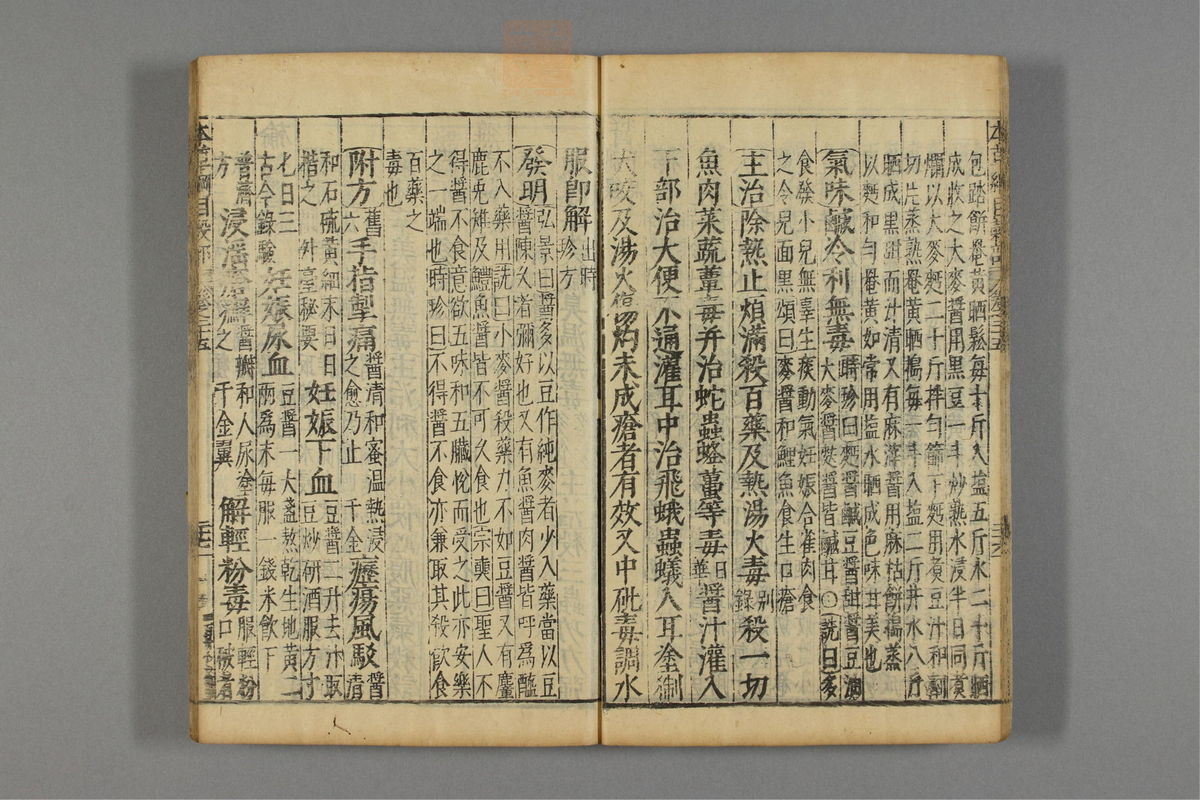 包踏餅罨黃晒鬆每十斤入塩五斤水二十斤晒
成收之大麥醬用黑豆一斗炒熟水浸半日同煑
爛以大麥麪二十斤拌勻篩下麪用煑豆汁和劑
切片蒸熟罨黃晒搗每一斗入塩二斤井水八斤
晒成黑甜而汁清又有麻滓醬用麻枯餅搗蒸
以麪和勻罨黃如常用塩水晒成色味甘美也
氣味鹹冷利無毒時珍曰麪醬鹹豆醬甜醬豆油
大麥醬麩醬皆鹹甘○詵曰多
食發小兒無辜生痰動氣妊娠合雀肉食
之令兒面黑頌曰麥醬和鯉魚食生口瘡
主治除熱止煩滿殺百藥及熱湯火毒別錄殺一切
魚肉菜蔬蕈毒并治蛇蟲蜂蠆等毒日華醬汁灌入
下部治大便不通灌耳中治飛蛾蟲蟻入耳塗猘
犬咬及湯火傷灼未成瘡者有效又中砒毒調水
服即解出時珍方
發明弘景曰醬多以豆作純麥者少入藥當以豆
醬陳久者彌好也又有魚醬肉醬皆呼爲醢
不入藥用詵曰小麥醬殺藥力不如豆醬又有麞
鹿兎雉及鱧魚醬皆不可久食也宗奭曰聖人不
得醬不食意欲五味和五臟悅而受之此亦安樂
之一端也時珍曰不得醬不食亦兼取其殺飲食
百藥之
毒也
附方舊六手指掣痛醬清和蜜温熱浸
之愈乃止 千金癧瘍風駁醬清
和石硫黃細末日日
揩之 外臺秘要妊娠下血豆醬二升去汁取
豆炒研酒服方寸
匕日三
古今錄驗妊娠尿血豆醬一大盞熬乾生地黃二
兩爲末每服一錢米飲下
普濟
方浸淫瘡癬醬瓣和人尿塗
之 千金翼解輕粉毒服輕粉
口破者
本草綱目穀部